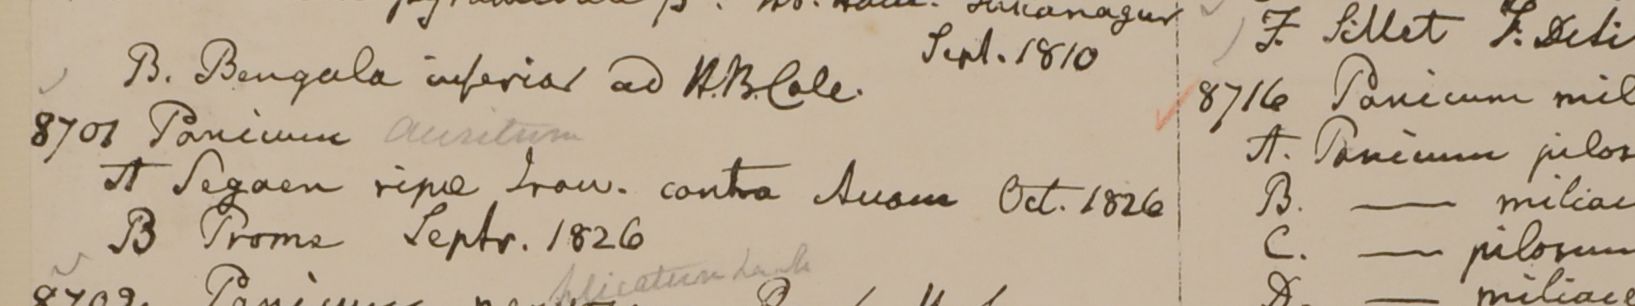 Sept. 1810
B. Bengala inferior ad H.B. Calc.
8701 Panicum auritum
A Segaen ripæ Iraw. contra Avam Oct. 1826
B Prome Septr. 1826
8702 Panicum
plicatum Lamk
F. Sillet F. De Si
8716 Panicum mil
A. Panicum pilos
B. — miliac
C. — pilosum
D. — miliac